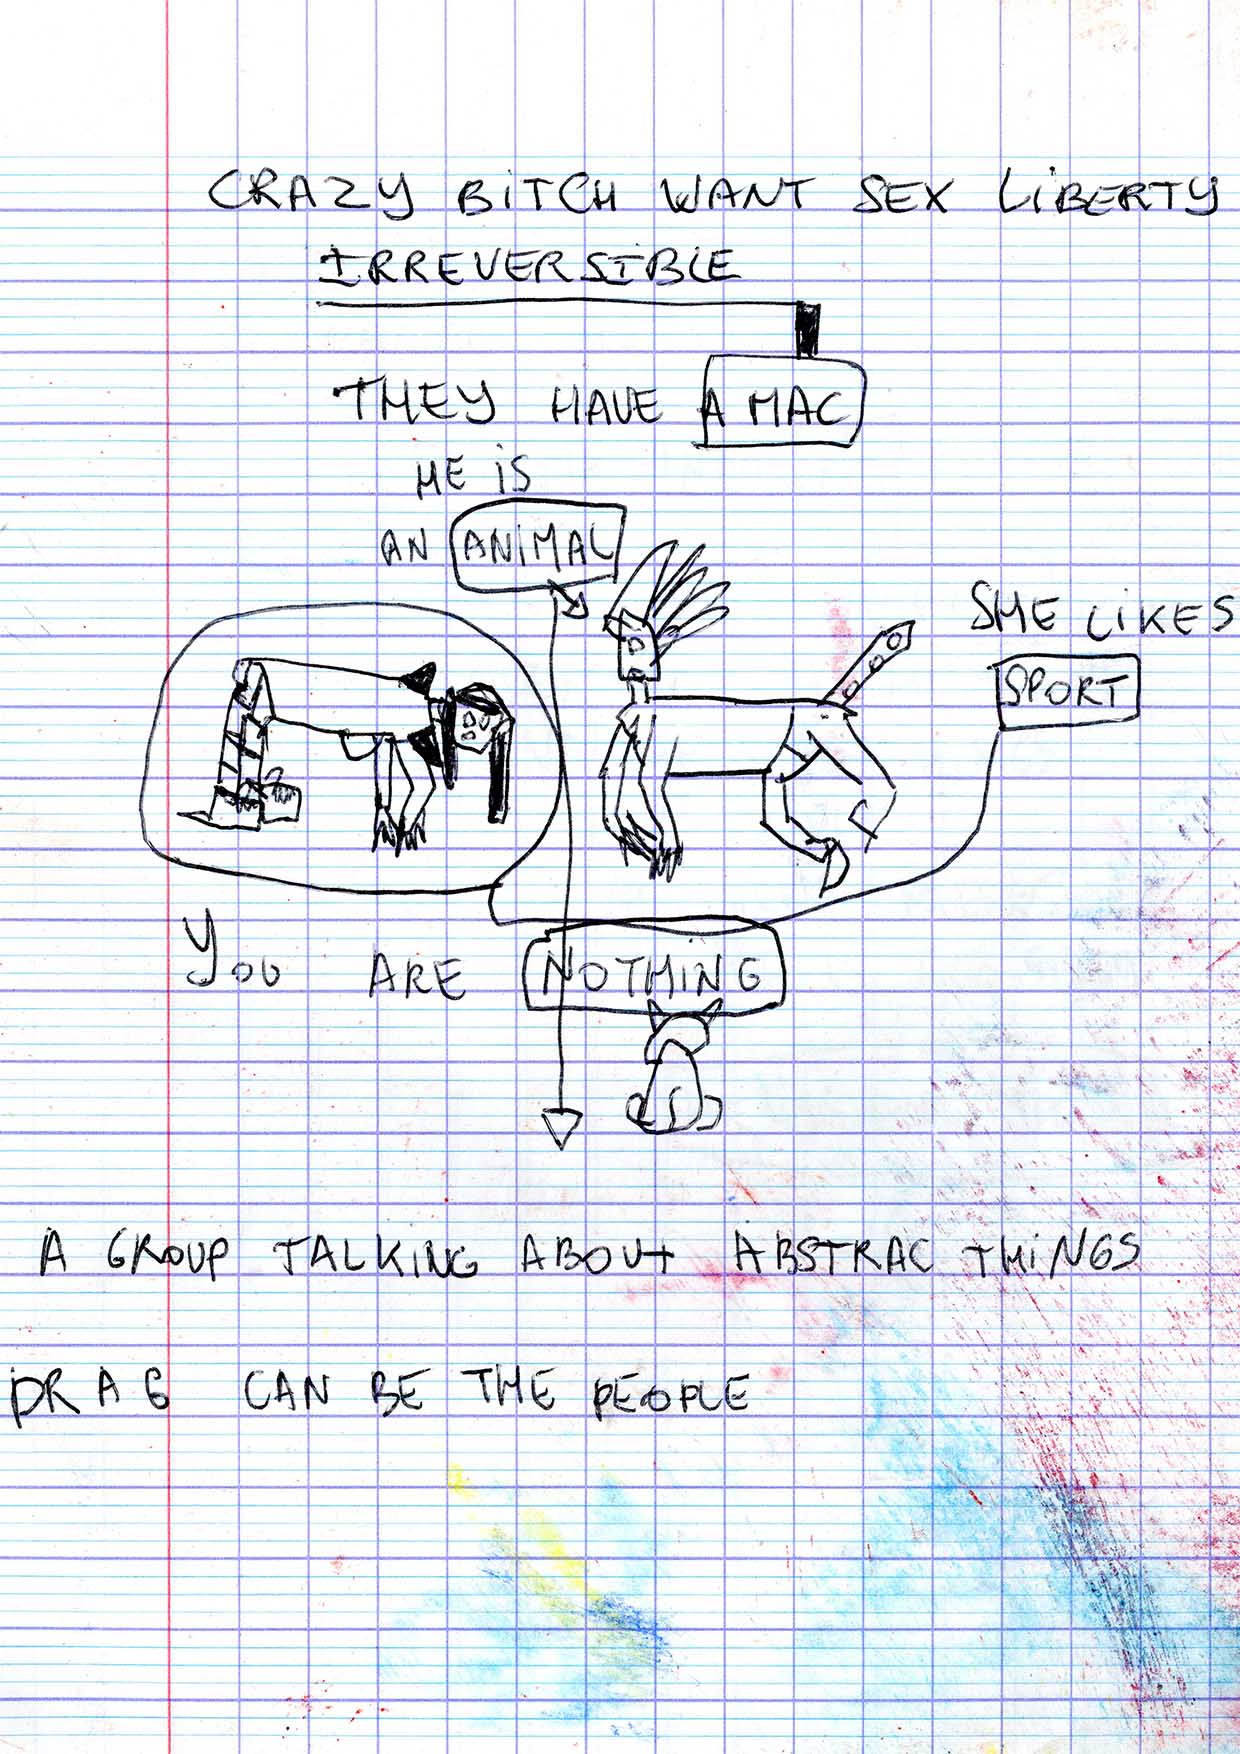 CRAZY BITCH WANT SEX LIBERTY
IRREVERSIBLE
THEY HAVE A MAC
HE IS
AN ANIMAL
SHE LIKES
SPORT
YOU ARE NOTHING
A GROUP TALKING ABOUT ABSTRAC THINGS
DRAG CAN BE THE PEOPLE